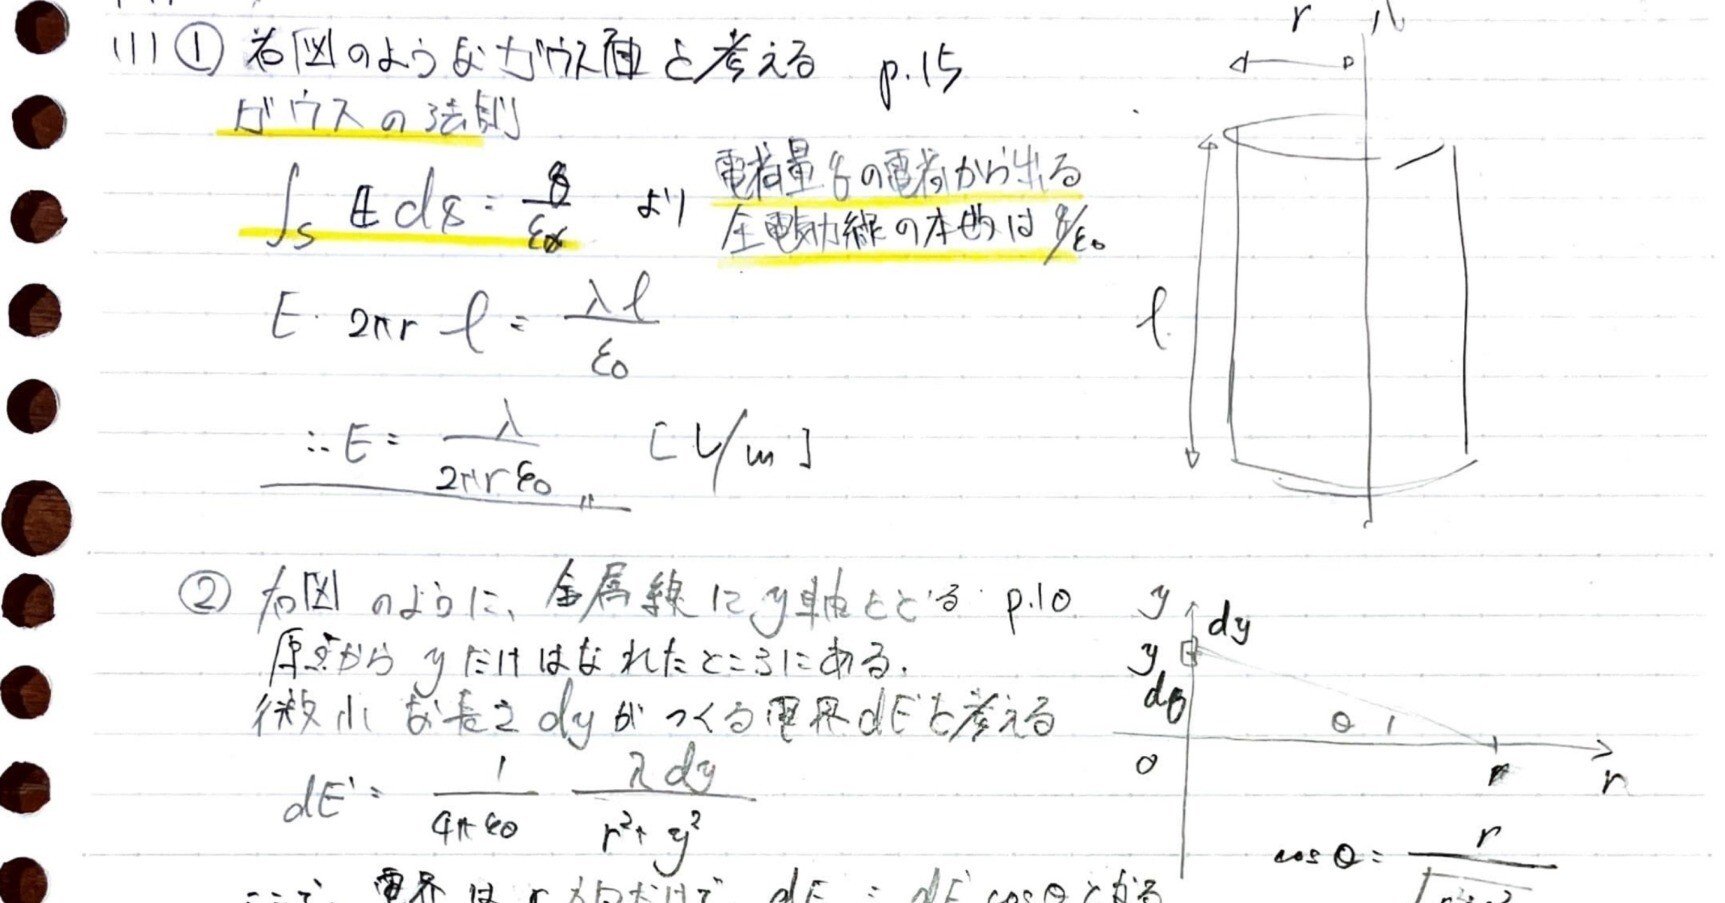 (1) ① 右図のようなガウス面を考える p.15
ガウスの法則
∫s E ds = q/ε0 より 電荷量qの電荷から出る
全電気力線の本数は q/ε0
E・2πr l = λl/ε0
∴E = λ/2πrε0 [V/m]
r
l
② 右図のように、金属線にy軸をとる p.10
原点から yだけはなれたところにある.
微小な長さ dyがつくる電界dE'を考える
dE' = 1/4πε0 λdy/r²+y²
y
dy
y
dθ
θ
0
r
r
cosθ = r/√r²+y²
ここで、電界は r方向だけで dE = dE'cosθとなる